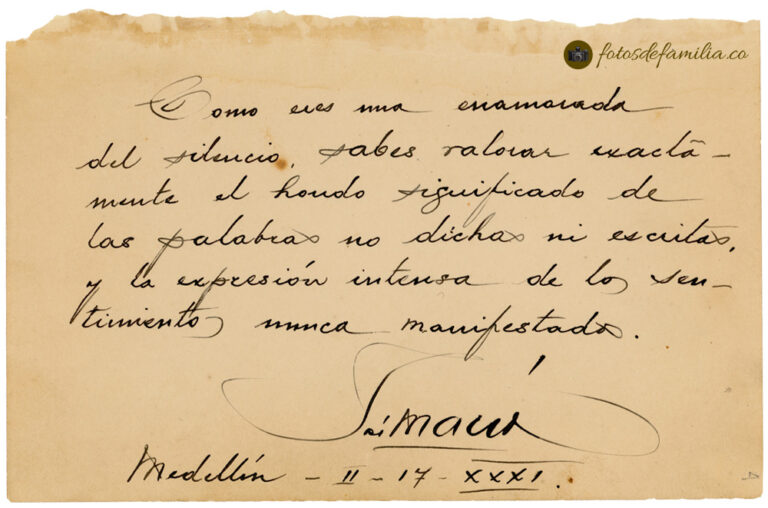 fotosdefamilia.co
Como eres una enamorada
del silencio, sabes valorar exactá-
mente el hondo significado de
las palabras no dichas ni escritas,
y la expresión intensa de los sen-
timientos nunca manifestados.
Medellín - II - 17 - XXXI.